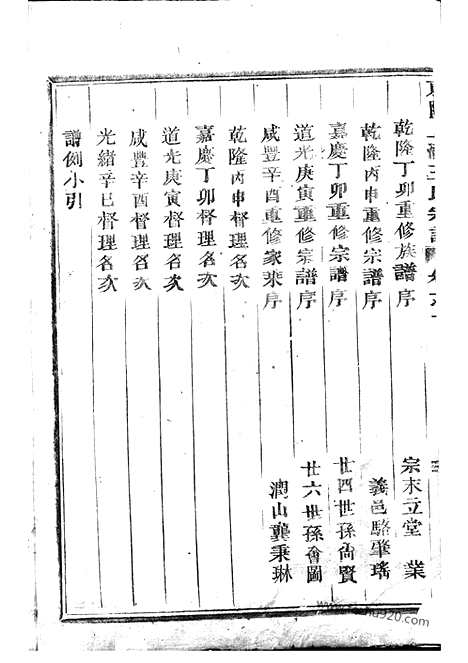 王氏宗譜
乾隆丁卯重修族譜序 宗末立堂 業
乾隆丙申重修宗譜序 義邑駱肇瑤
嘉慶丁卯重修宗譜序 廿四世孫尙賢
道光庚寅重修宗譜序 廿六世孫會圖
咸豐辛酉重修家乘序 潤山龔秉琳
乾隆丙申督理名次
嘉慶丁卯督理名次
道光庚寅督理名次
咸豐辛酉督理名次
光緒辛巳督理名次
譜例小引